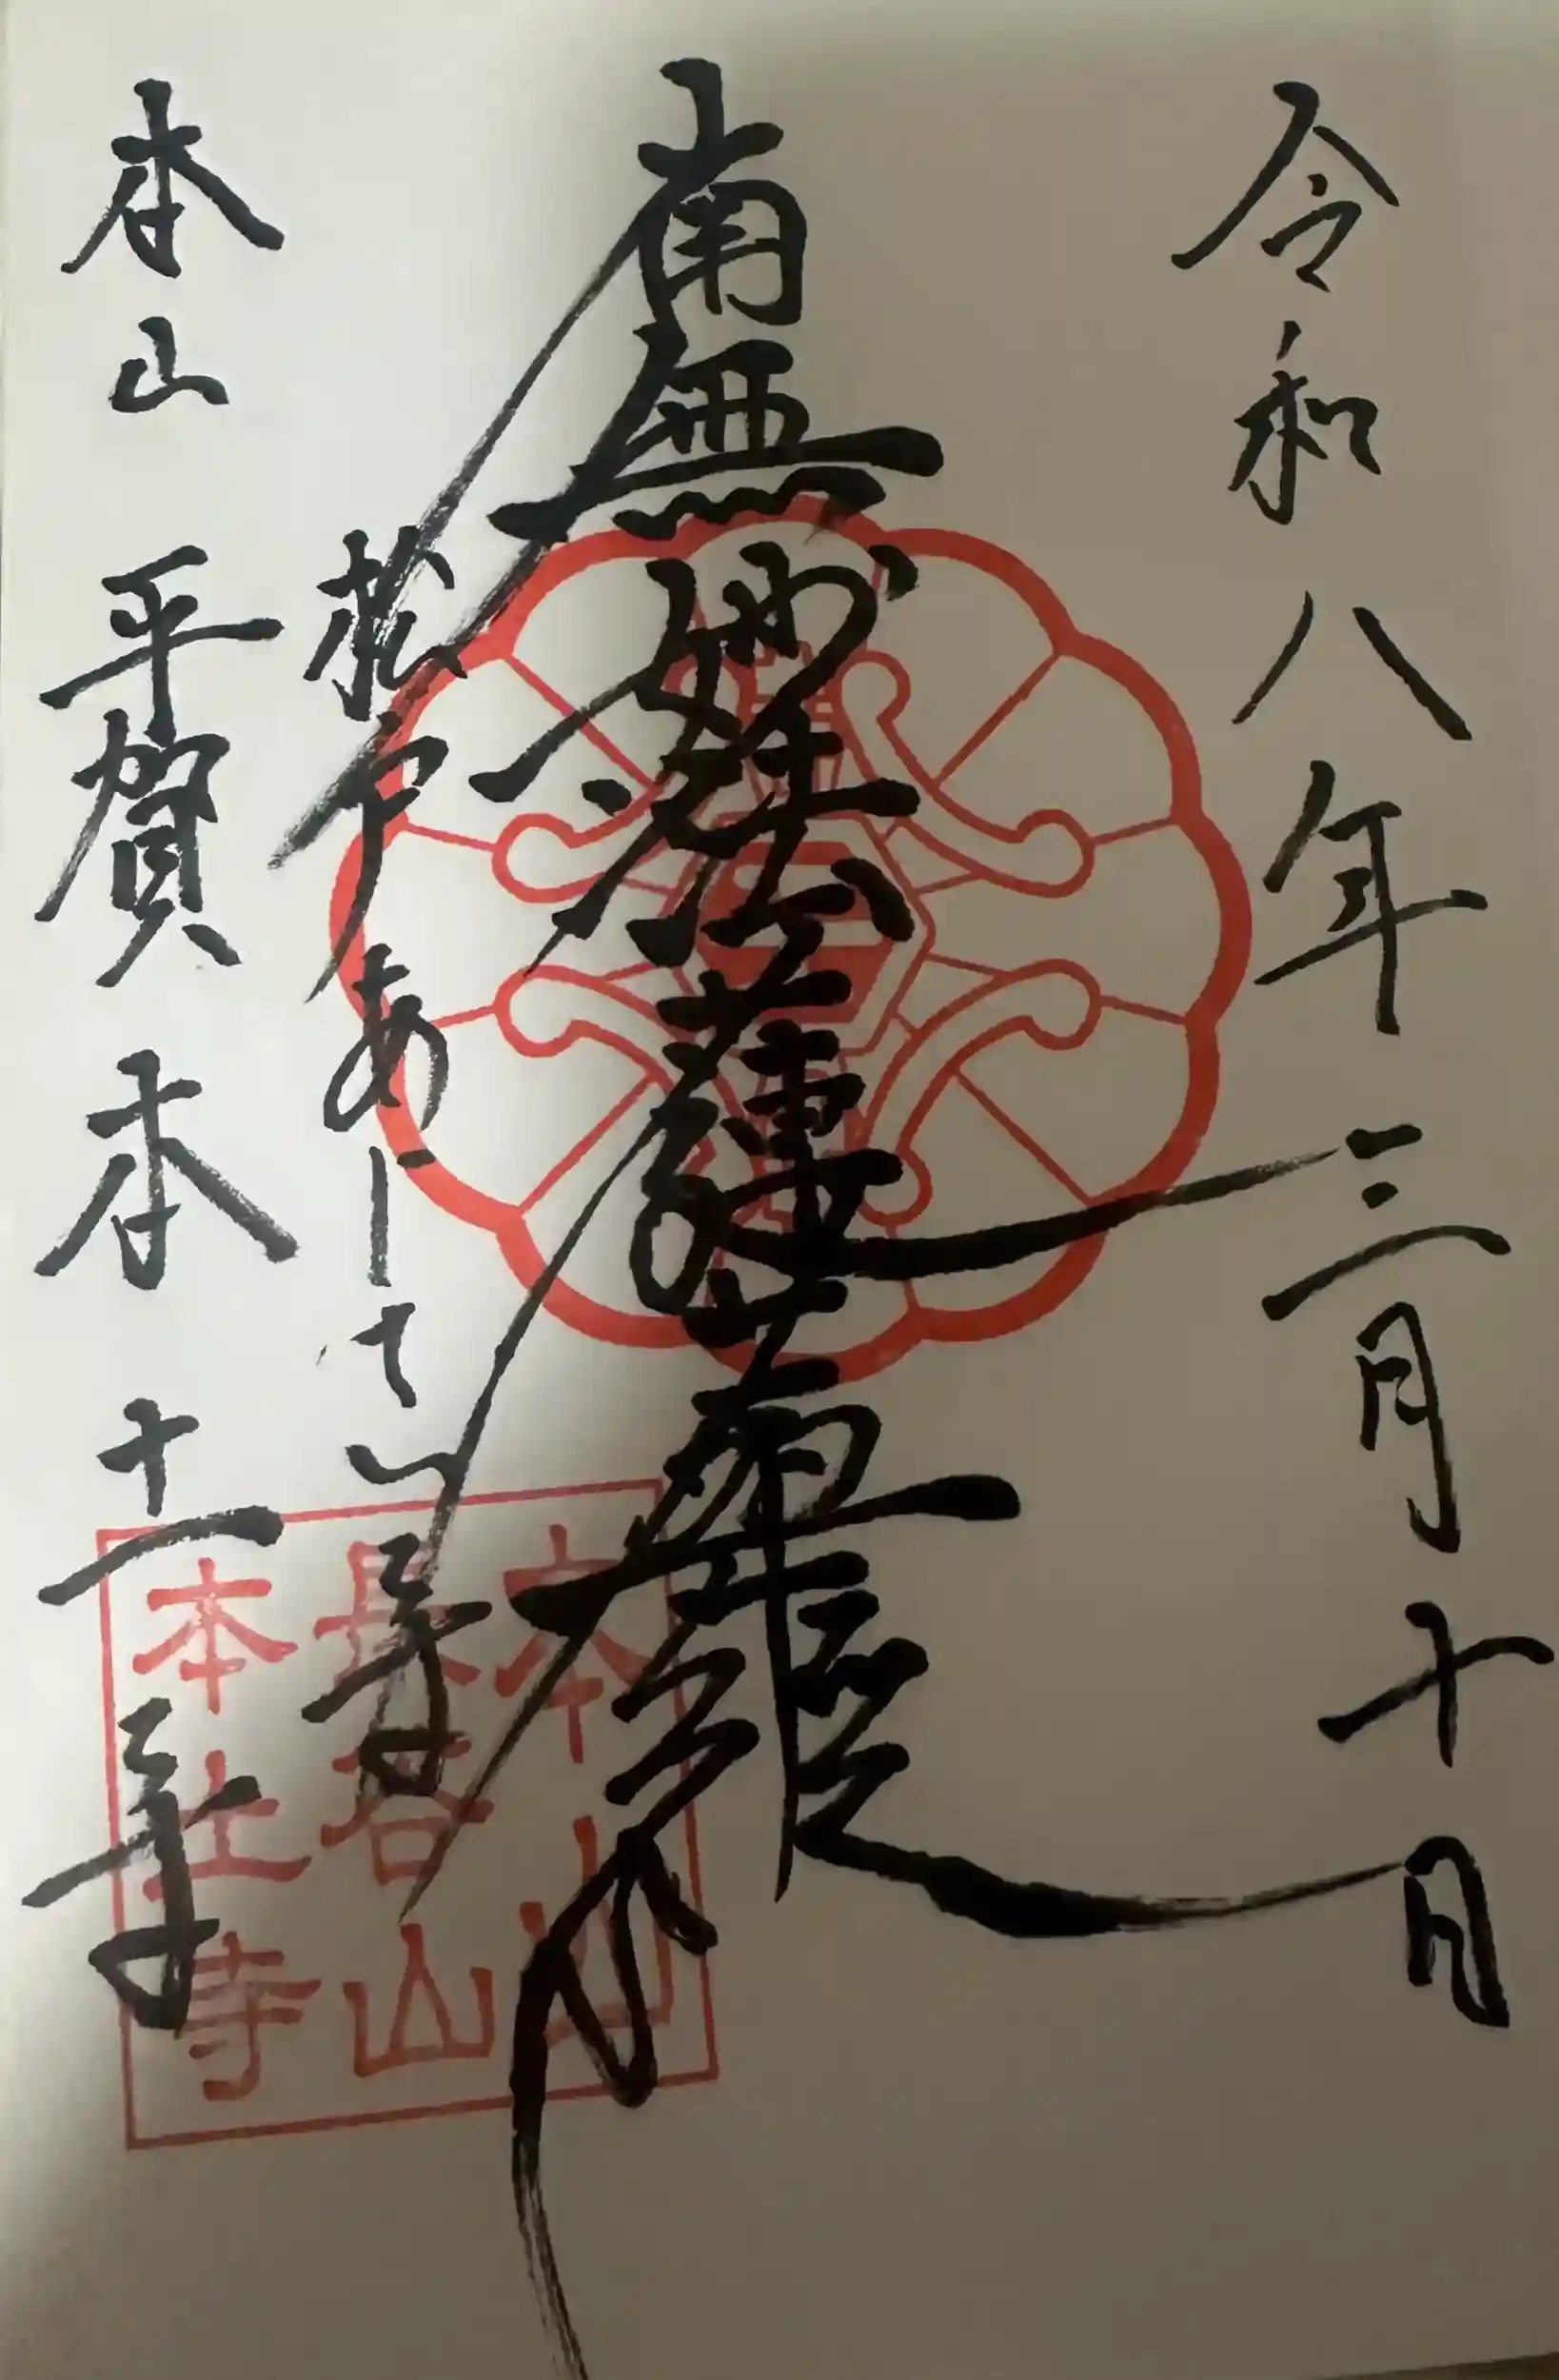 令和八年三月十日
南無妙法蓮華経
松戸あじさい寺
本山 平賀 本土寺
本山
長谷山
本土寺